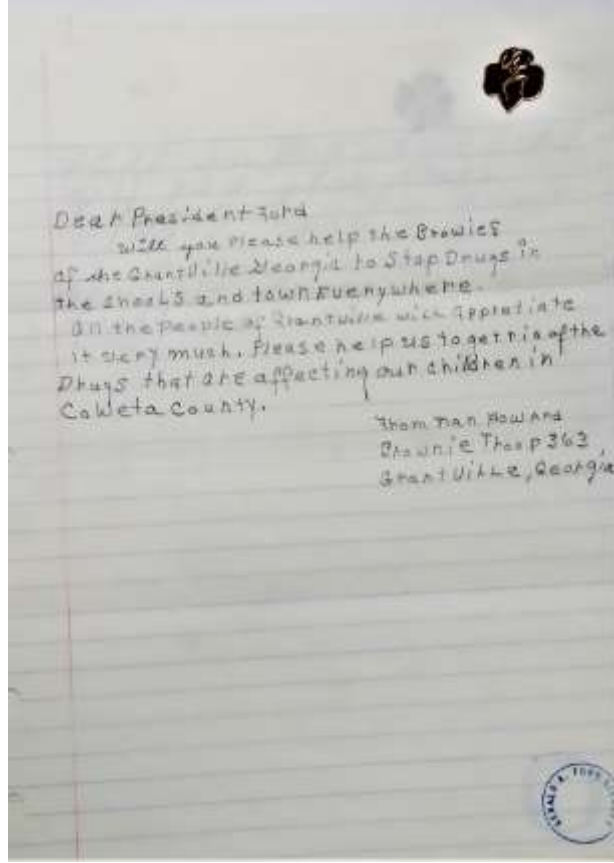 Dear President Ford
Will you Please help the Browies
of the Grantville Georgia to Stop Drugs in
the Shools and town Everywhere.
All the People of Grantville will Appretiate
it very mush. Please help us to get rid of the
Drugs that are affecting our children in
Coweta County.
From Nan Howard
Brownie Troop 363,
Grantville, Georgia
GERALD R. FORD